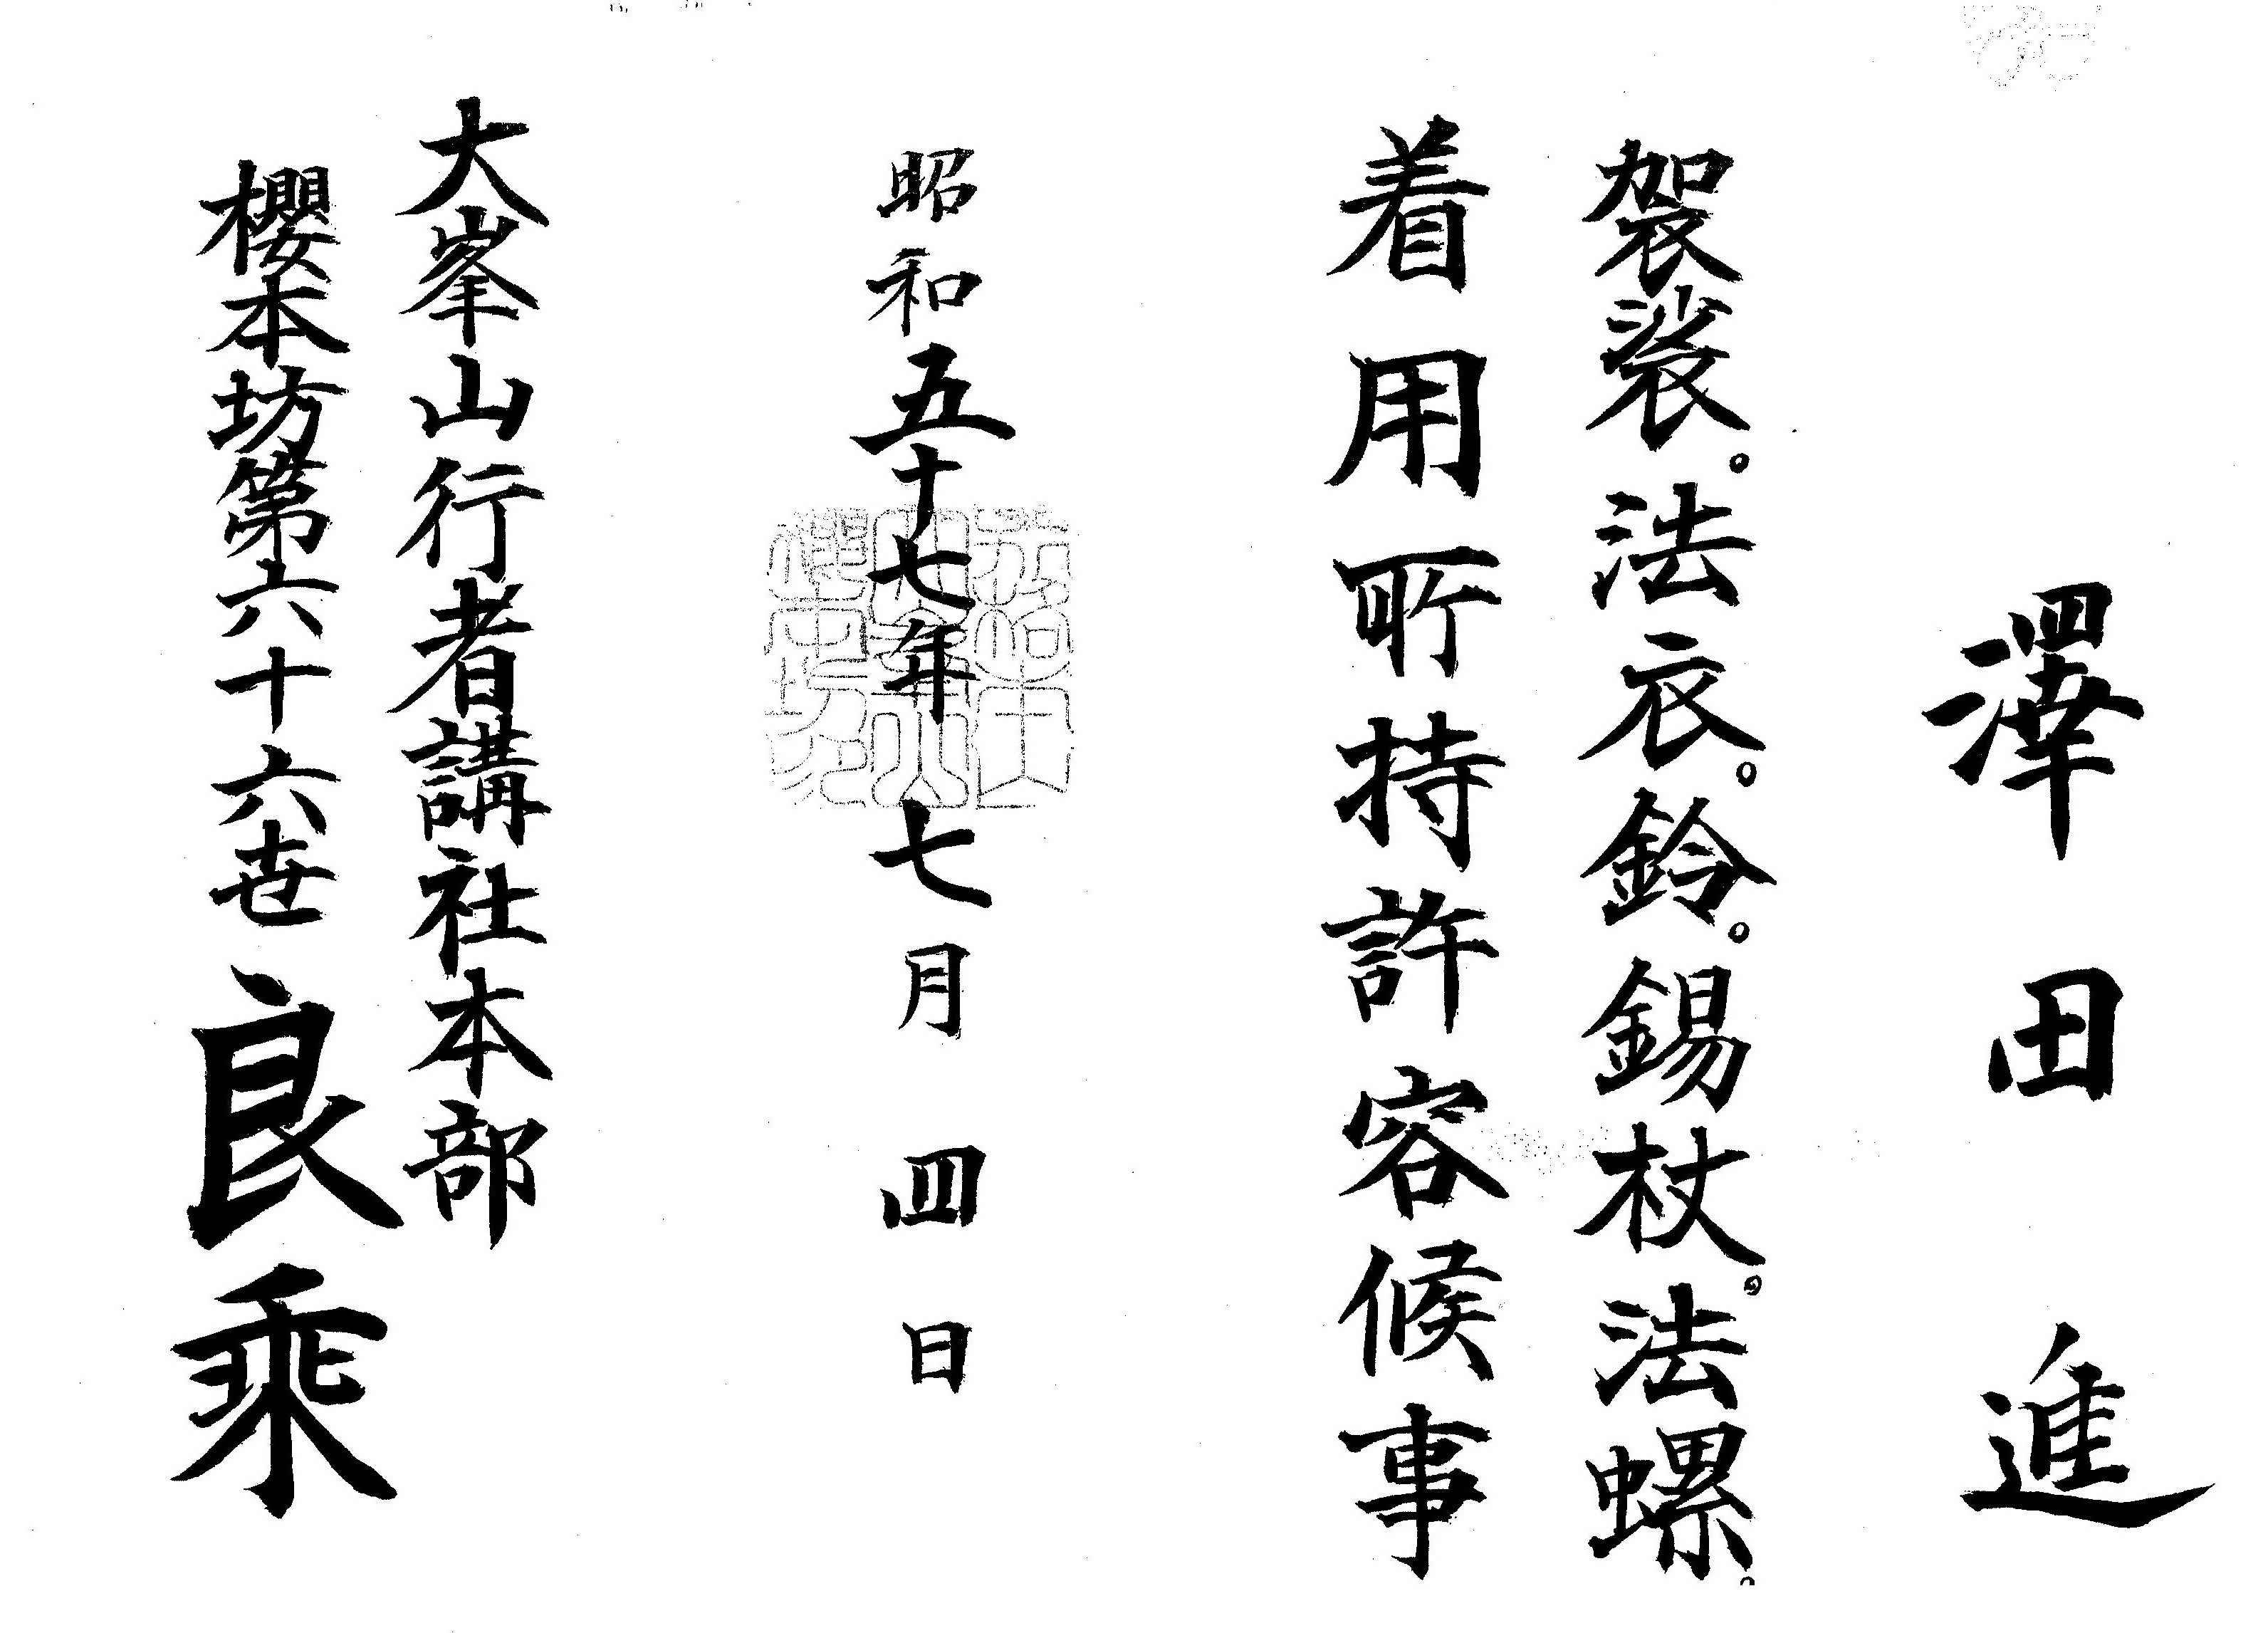 澤田進
袈裟。法衣。鈴。錫杖。法螺。
着用所持許容候事
昭和五十七年七月四日
大峯山行者講社本部
櫻本坊第六十六世良乘